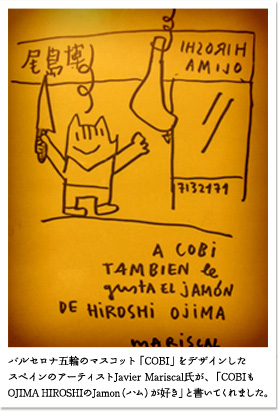 尾島博
HIROSHI
OJIMA
7132171
A COBI
TAMBIEN le
gusta EL JAMÓN
DE HiROSHi OJIMA
MARISCAL
バルセロナ五輪のマスコット「COBI」をデザインした
スペインのアーティストJavier Mariscal氏が、「COBIも
OJIMA HIROSHIのJamon（ハム）が好き」と書いてくれました。